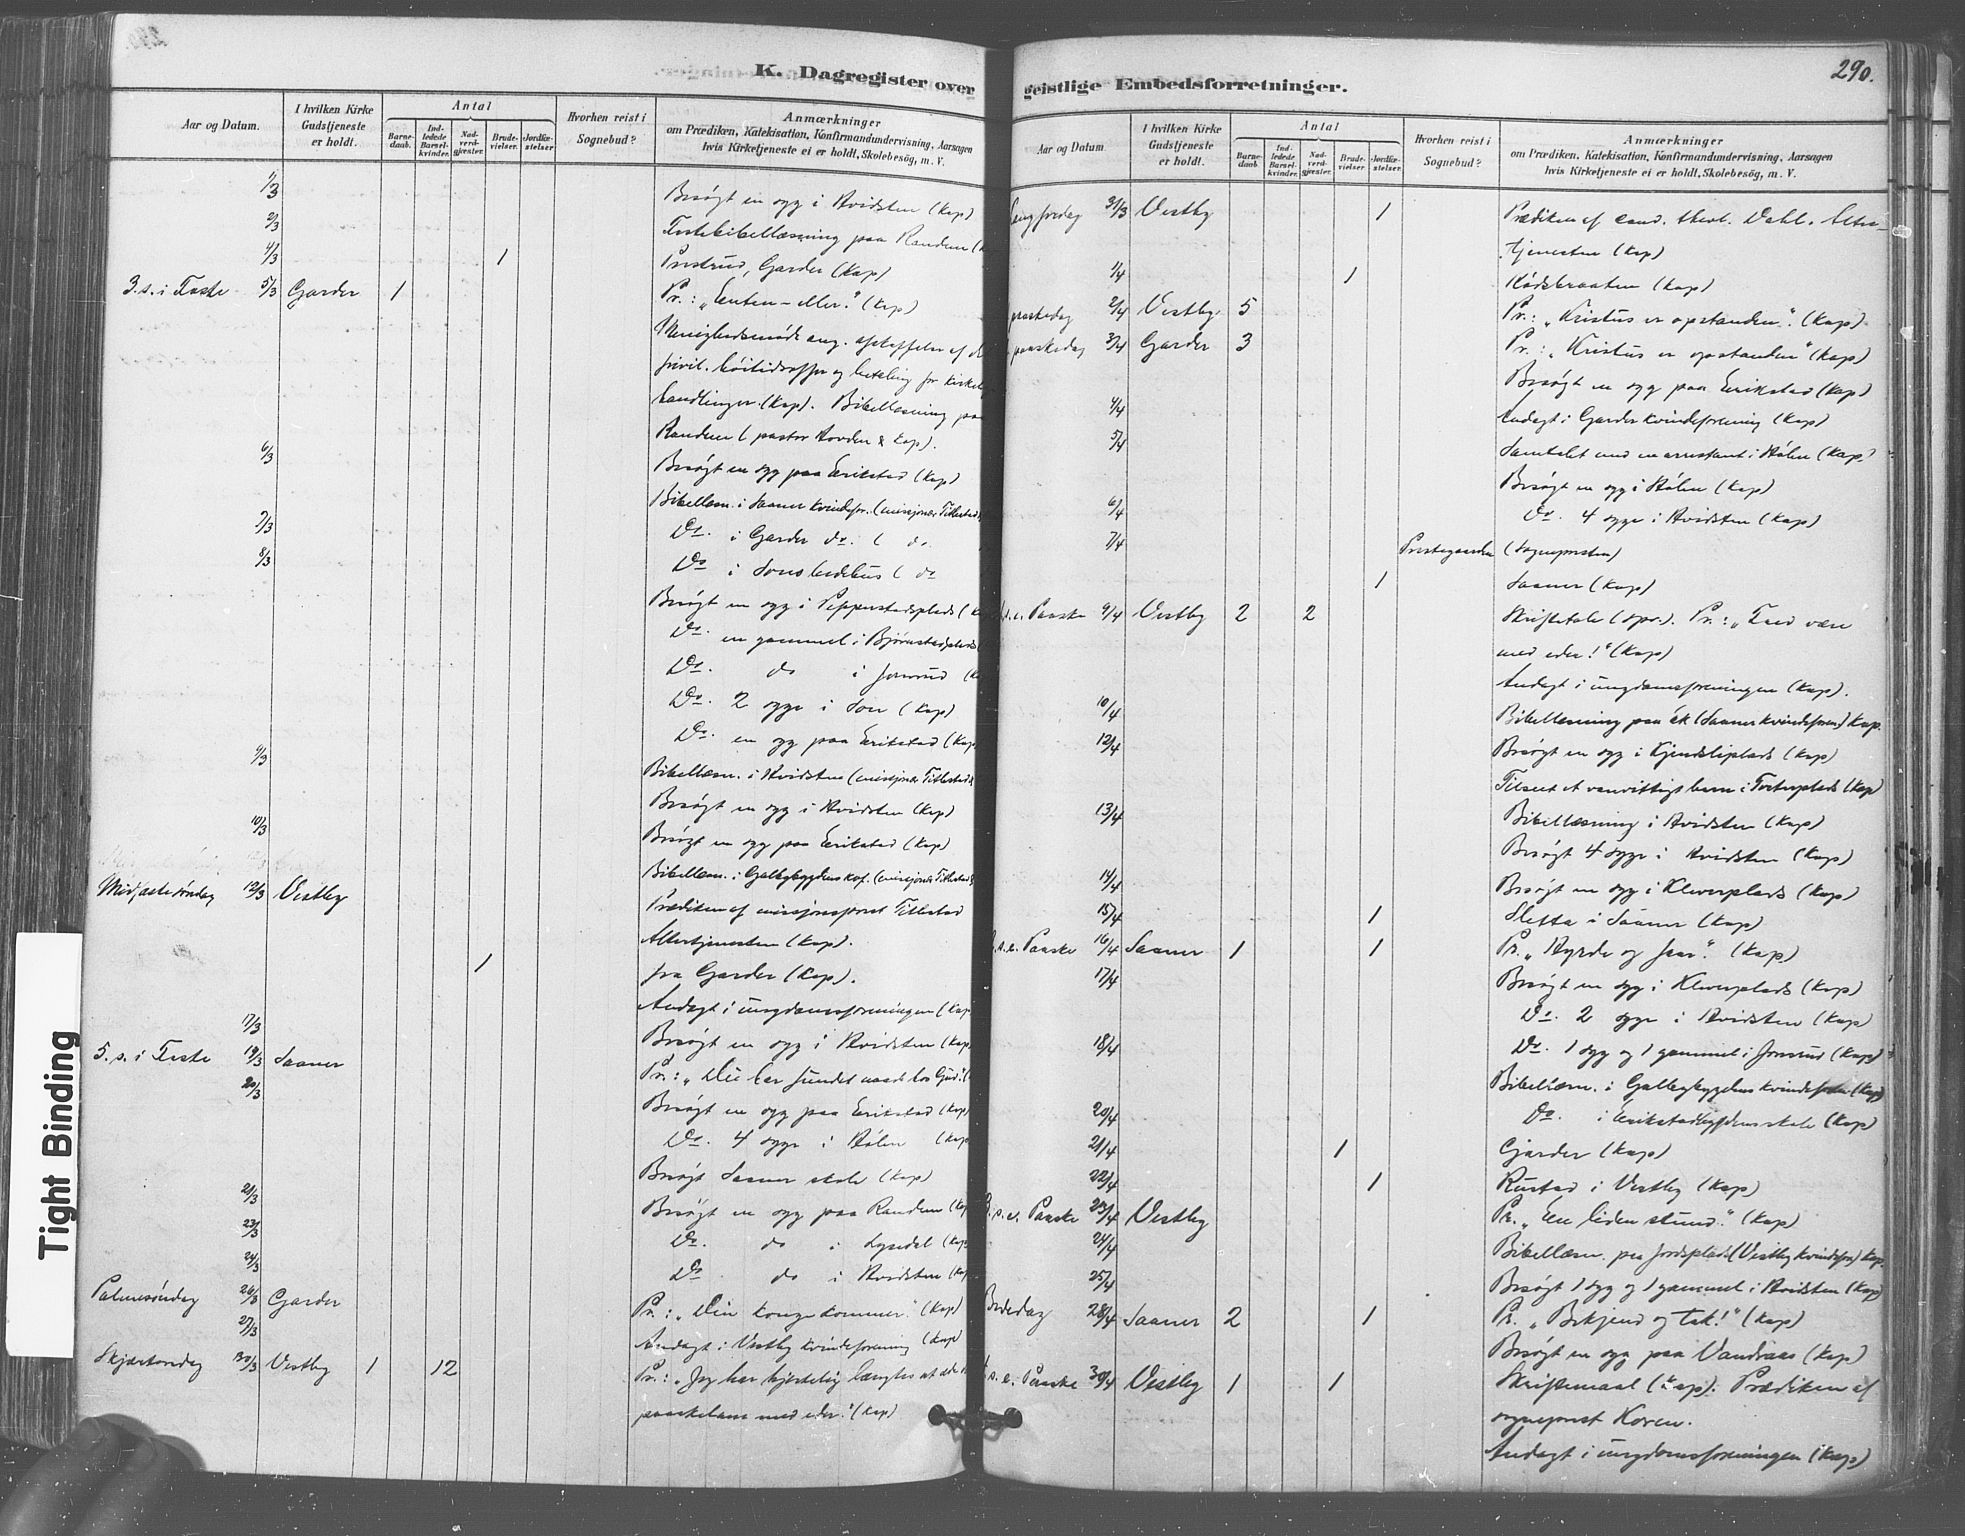 290.
K. Dagregister over
Aar og Datum.
I hvilken Kirke Gudstjeneste er holdt.
Antal
Barnedaab.
Indledede Barselkvinder.
Nadverdgjæster.
Brudevielser.
Jordfæstelser
Hvorhen reist i Sognebud?
Anmærkninger
om Prædiken, Katekisation, Konfirmandundervisning, Aarsagen
hvis Kirketjeneste ei er holdt, Skolebesøg, m. V.
1/3 Besøgt en syg i Hvidsten (Kap)
2/3 Fastebibellæsning paa Randem
4/3 1 Prestrud, Garder (Kap)
3. s. i Faste 5/3 Garder 1 Pr.: "Enten – eller." (Kap)
Menighedsmøde ang. afskaffelse af
høitidsoffer og betaling for kirkelige
handlinger. (Kap). Bibellæsning paa
Randem (pastor Hovden & Kap).
6/3 Besøgt en syg paa Erikstad (Kap)
Bibellæsn. i Saaner kvindefor. (misjonær Titlestad
7/3 Do. i Garder do. ( do.
8/3 Do i Sons bedehus ( do
Besøgt en syg i Pepperstadplads
Do. en gammel i Bjørnstadplads
Do. do i Jonsrud
Do. 2 syge i Son (Kap)
Do. en syg paa Erikstad (Kap
9/3 Bibellæsn. i Hvidsten (misjonær Titlestad
Besøgt en syg i Hvidsten (Kap)
10/3 Besøgt en syg paa Erikstad (Kap)
Bibellæsn. i Galbybygdens kvf. (misjonær Titlestad
Midfastesøndag 12/3 Vestby Prædiken af misjonsprest Titlestad
Altertjenesten (Kap).
1 fra Garder (Kap).
Andagt i ungdomsforeningen (Kap
17/3 Besøgt en syg i Hvidsten (Kap
5. s. i Faste 19/3 Saaner Pr.: "Du har fundet naade hos Gud."
20/3 Besøgt en syg paa Erikstad (Kap)
Do. 4 syge i Hølen (Kap
Besøgt Saaner skole (Kap)
21/3 Besøgt en syg paa Randem (Kap
23/3 Do. do i Lysedal (Kap
24/3 Do do i Hvidsten (Kap
Palmesøndag 26/3 Garder Pr.: "Din konge kommer." (Kap)
27/3 Andagt i Vestby kvindeforening (Kap)
Skjærtorsdag 30/3 Vestby 1 12 Pr.: "Jeg har hjertelig længtes at æde
paaskelam med eder." (Kap)
geistlige Embedsforretninger.
Aar og Datum
I hvilken Kirke Gudstjeneste er holdt.
Antal
Barnedaab
Indledede Barselkvinder.
Nadverdgjæster.
Brudevielser
Jordfæstelser.
Hvorhen reist i Sognebud?
Anmærkninger
om Prædiken, Katekisation, Konfirmandundervisning, Aarsagen
hvis Kirketjeneste ei er holdt, Skolebesøg, m. V.
Langfredag 31/3 Vestby 1 Prædiken af cand. theol. Dahl. Alter-
tjenesten (Kap)
1/4 1 Kødsbraaten (Kap)
paaskedag 2/4 Vestby 5 Pr.: "Kristus er opstanden." (Kap)
paaskedag 3/4 Garder 3 Pr.: "Kristus er opstanden" (Kap)
Besøgt en syg paa Erikstad (Kap)
4/4 Andagt i Garder kvindeforening (Kap)
5/4 Samtalet med en arrestant i Hølen (Kap)
Besøgt en syg i Hølen (Kap)
6/4 Do. 4 syge i Hvidsten (Kap)
7/4 Prestegaarden (Sognepresten)
1 Saaner (Kap)
s. e. Paaske 9/4 Vestby 2 2 Skriftetale (spr.). Pr.: "Fred være
med eder!" (Kap)
Andagt i ungdomsforeningen (Kap).
10/4 Bibellæsning paa Øk (Saaner kvindeforen) Kap.
12/4 Besøgt en syg i Kjendsliplads (Kap)
Tilseet et vanvittigt barn i Torterplads (Kap)
13/4 Bibellæsning i Hvidsten (Kap)
Besøgt 4 syge i Hvidsten (Kap)
14/4 Besøgt en syg i Kleverplads (Kap)
15/4 1 Sletta i Saaner (Kap)
s. e. Paaske 16/4 Saaner 1 1 Pr. "Hyrde og faar." (Kap)
17/4 Besøgt en syg i Kleverplads (Kap)
Do. 2 syge i Hvidsten (Kap)
18/4 Do. 1 syg og 1 gammel i Jonsrud (Kap)
Bibellæsn. i Galbybygdens kvindeforen (Kap)
20/4 Do i Erikstadbygdens skole (Kap)
21/4 1 Garder (Kap)
22/4 1 Rustad i Vestby (Kap)
3. s. e. Paaske 23/4 Vestby Pr. "En liden stund." (Kap)
24/4 Bibellæsn. paa Jordsplads (Vestby kvindefor) Kap.
25/4 Besøgt 1 syg og 1 gammel i Hvidsten (Kap)
Bededag 28/4 Saaner 2 1 Pr. "Bekjend og tak!" (Kap)
Besøgt en syg paa Vandraas (Kap)
s. e. Paaske 30/4 Vestby 1 1 Skriftemaal (Kap). Prædiken af
sogneprest Koren.
Andagt i ungdomsforeningen (Kap)
Tight Binding